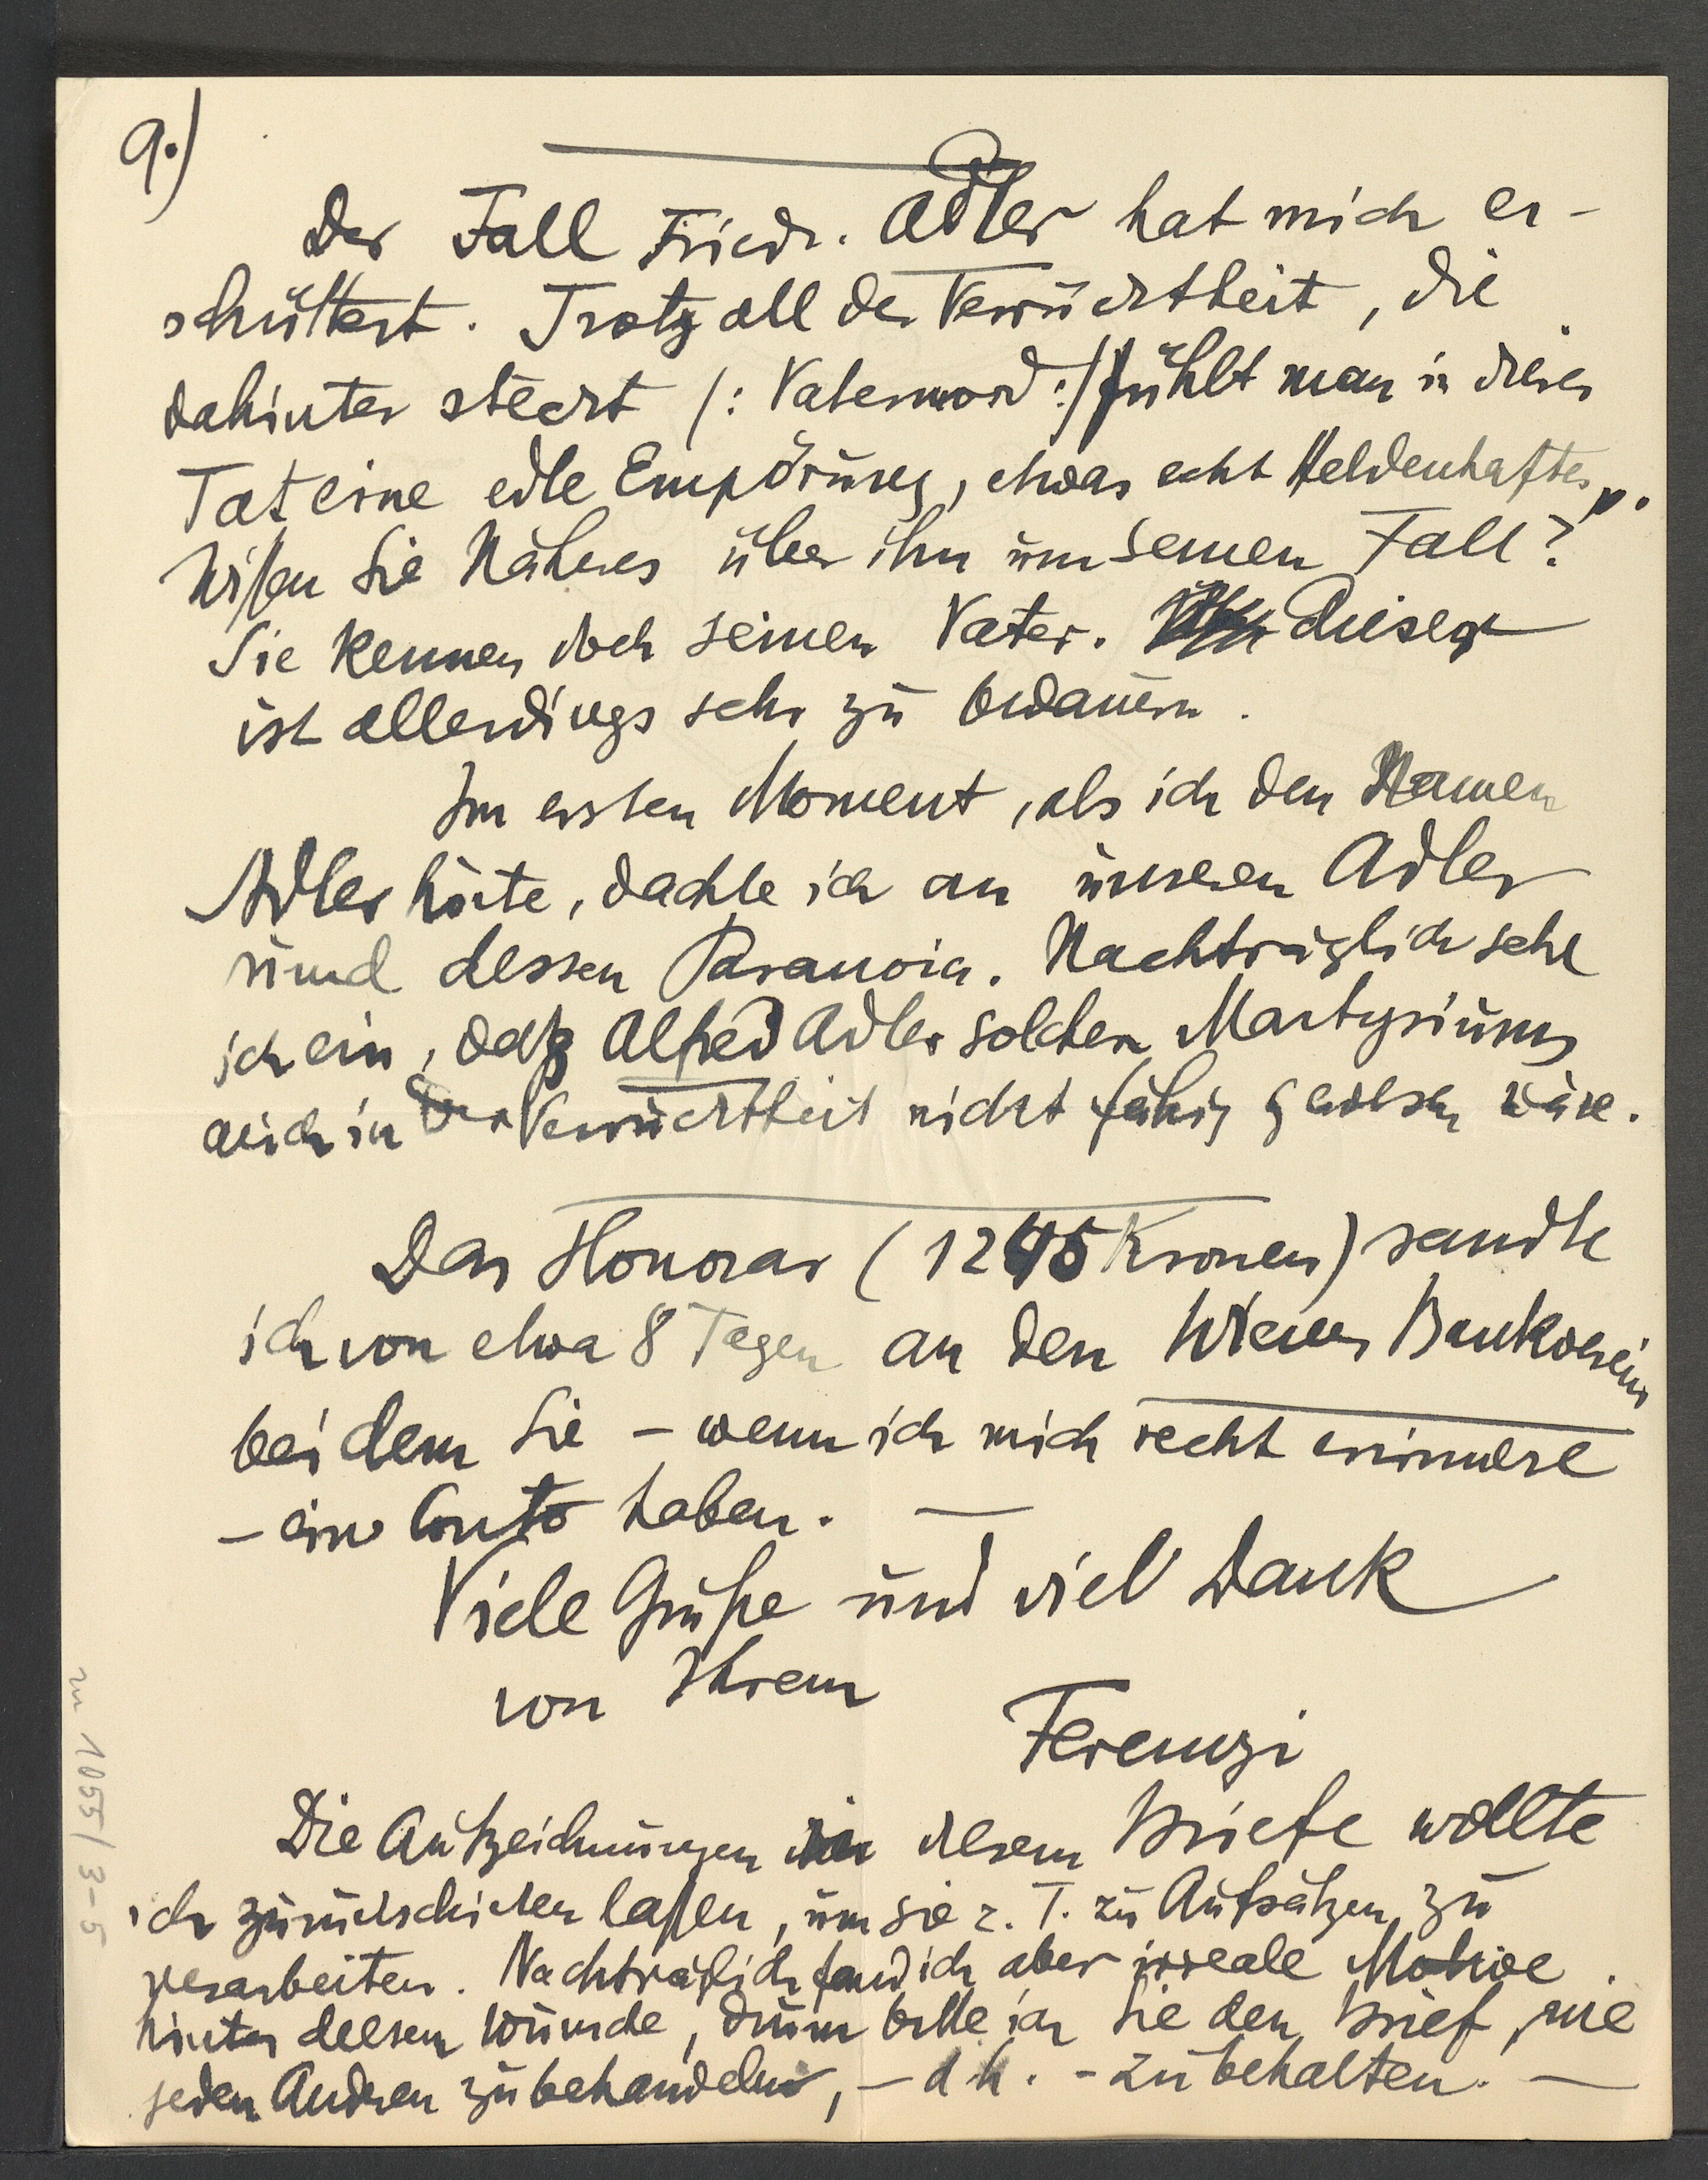 9.)
Der Fall Friedr. Adler hat mich er-
schüttert. Trotz all der Verrücktheit, die
dahinter steckt (: Vatermord :) fühlt man in dieser
Tat eine edle Empörung, etwas echt Heldenhaftes.
Wissen Sie Näheres über ihn um seinen Fall?
Sie kennen doch seinen Vater. Dieser
ist allerdings sehr zu bedauern.
Im ersten Moment, als ich den Namen
Adler hörte, dachte ich an unseren Adler
und dessen Paranoia. Nachträglich sehe
ich ein, daß Alfred Adler solchen Martyriums
auch in der Verrücktheit nicht fähig gewesen wäre.
Das Honorar (1245 Kronen) sandte
ich vor etwa 8 Tagen an den Wiener Bankverein
bei dem Sie – wenn ich mich recht erinnere
– ein Conto haben. —
Viele Grüße und viel Dank
von Ihrem
Ferenczi
Die Aufzeichnungen in diesem Briefe wollte
ich zurückschicken lassen, um sie z. T. zu Aufsätzen zu
verarbeiten. Nachträglich fand ich aber irreale Motive
hinter diesem Wunsche, drum bitte ich Sie den Brief, wie
jeden Andren zu behandeln, – d h. - zu behalten. —
m 1055/3-5